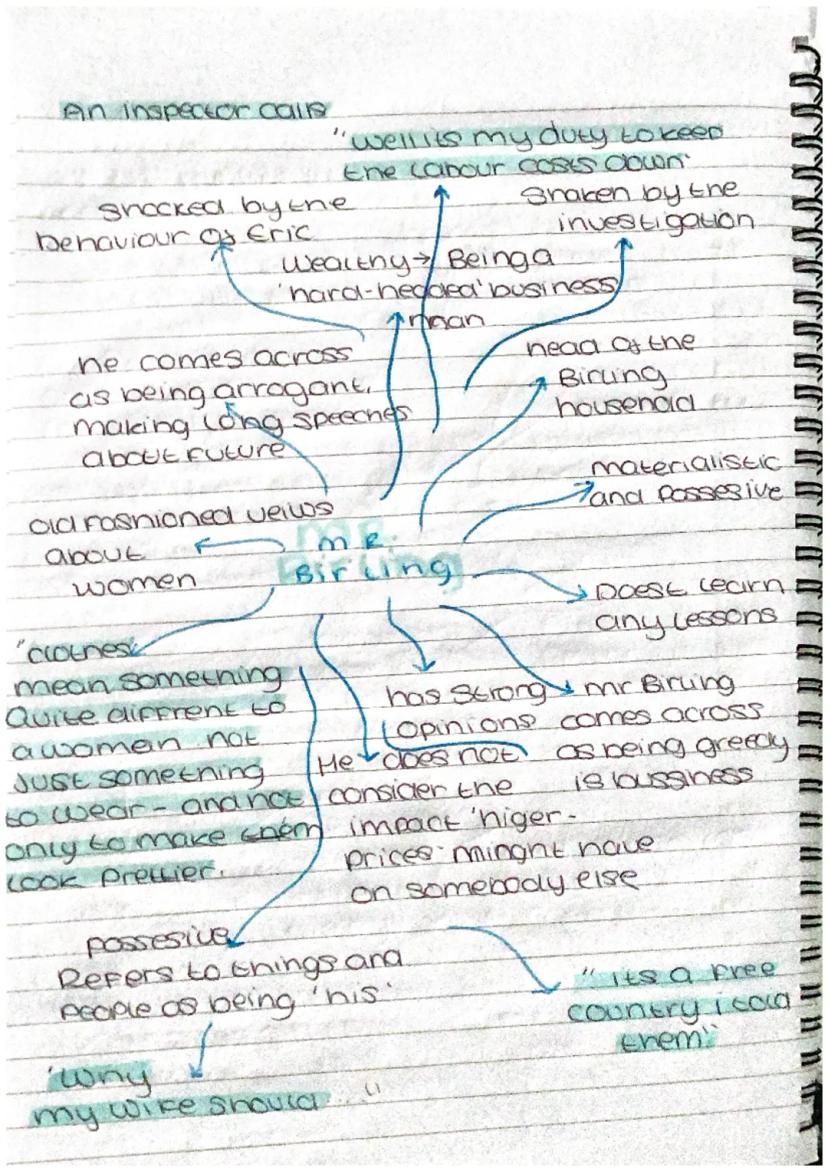 An inspector calls
"well its my duty to keep
the labour costs down"
shocked by the
behaviour of Eric
shaken by the
investigation
Wealthy → Being a
'hard-headed' business
man
he comes across
as being arrogant,
making long speeches
about future
head of the
Birling
household
materialistic
and possesive
old fashioned veiws
about
women
MR.
Birling
Doest learn
any lessons
"clothes
mean something
Quite diffrent to
a women not
Just something
to wear - and not
only to make them
look prettier.
has strong
opinions
mr Birling
comes across
as being greedy
is bussiness
He does not
consider the
impact 'higer-
prices' minght have
on somebody else
possesive
Refers to things and
people as being 'his'
"its a free
country i told
them"
'Why
my wife should "